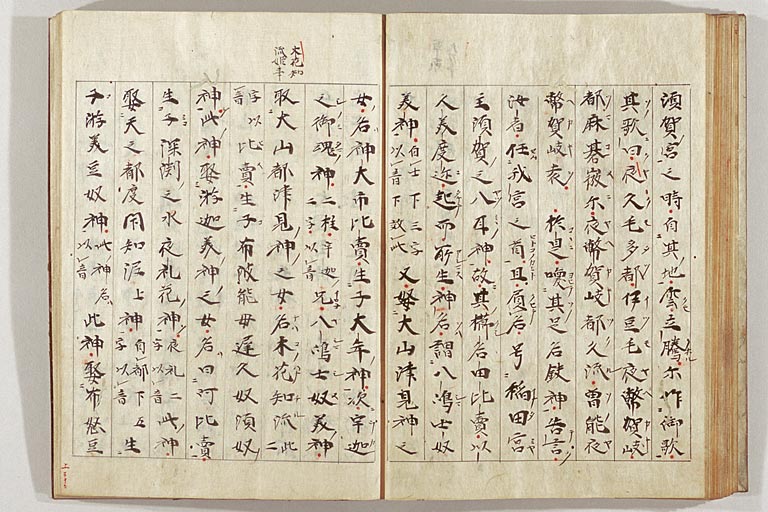 須賀宮之時自其地雲立騰尓作御歌
其歌曰夜久毛多都伊豆毛夜幣賀岐
都麻碁微尓夜幣賀岐都久流曽能夜
幣賀岐袁 於是喚其足名鉄神告言
汝者任我宮之首且負名号稲田宮
主須賀之八耳神故其櫛名田比賣以
久美度迩起而所生神名謂八嶋士奴
美神自士下三字以音下效此 又娶大山津見神之
女名神大市比賣生子大年神次宇迦
之御魂神二柱宇迦二字以音 兄八嶋士奴美神
取大山都津見神之女名木花知流此二
字以音比賣生子布波能母遅久奴須奴
神此神娶淤迦美神之女名曰河比賣
生子深渕之水夜礼花神夜礼二字以音 此神
娶天之都度閇知泥上神自都下五字以音 生
子淤美豆奴神此神名以音 此神娶布怒豆
木花知
流姫